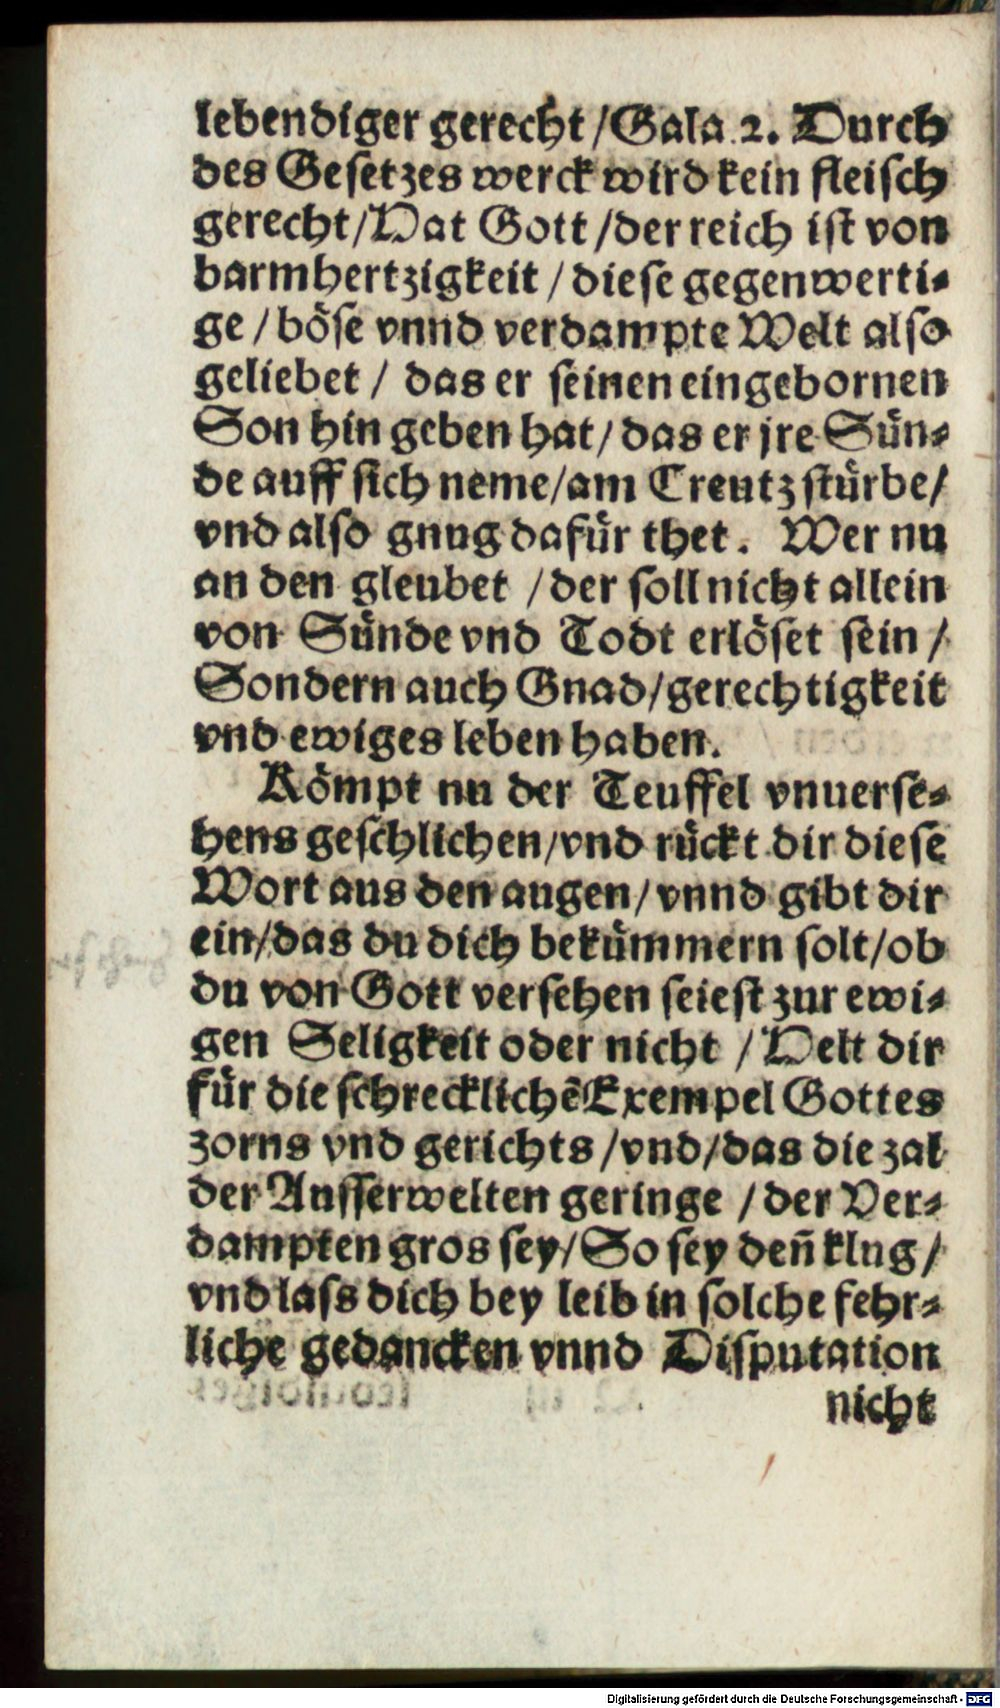 lebendiger gerecht / Gala. 2. Durch
des Gesetzes werck wird kein fleisch
gerecht / Hat Gott / der reich ist von
barmhertzigkeit / diese gegenwerti-
ge / böse vnnd verdampte Welt also
geliebet / das er seinen eingebornen
Son hin geben hat / das er jre Sün-
de auff sich neme / am Creutz stürbe /
vnd also gnug dafür thet. Wer nu
an den gleubet / der soll nicht allein
von Sünde vnd Todt erlöset sein /
Sondern auch Gnad / gerechtigkeit
vnd ewiges leben haben.
Kömpt nu der Teuffel vnuerse-
hens geschlichen / vnd rückt dir diese
Wort aus den augen / vnnd gibt dir
ein / das du dich bekümmern solt / ob
du von Gott versehen seiest zur ewi-
gen Seligkeit oder nicht / Helt dir
für die schrecklichē Exempel Gottes
zorns vnd gerichts / vnd / das die zal
der Ausserwelten geringe / der Ver-
dampten gros sey / So sey deñ klug /
vnd lass dich bey leib in solche fehr-
liche gedancken vnnd Disputation
nicht
Digitalisierung gefördert durch die Deutsche Forschungsgemeinschaft - DFG